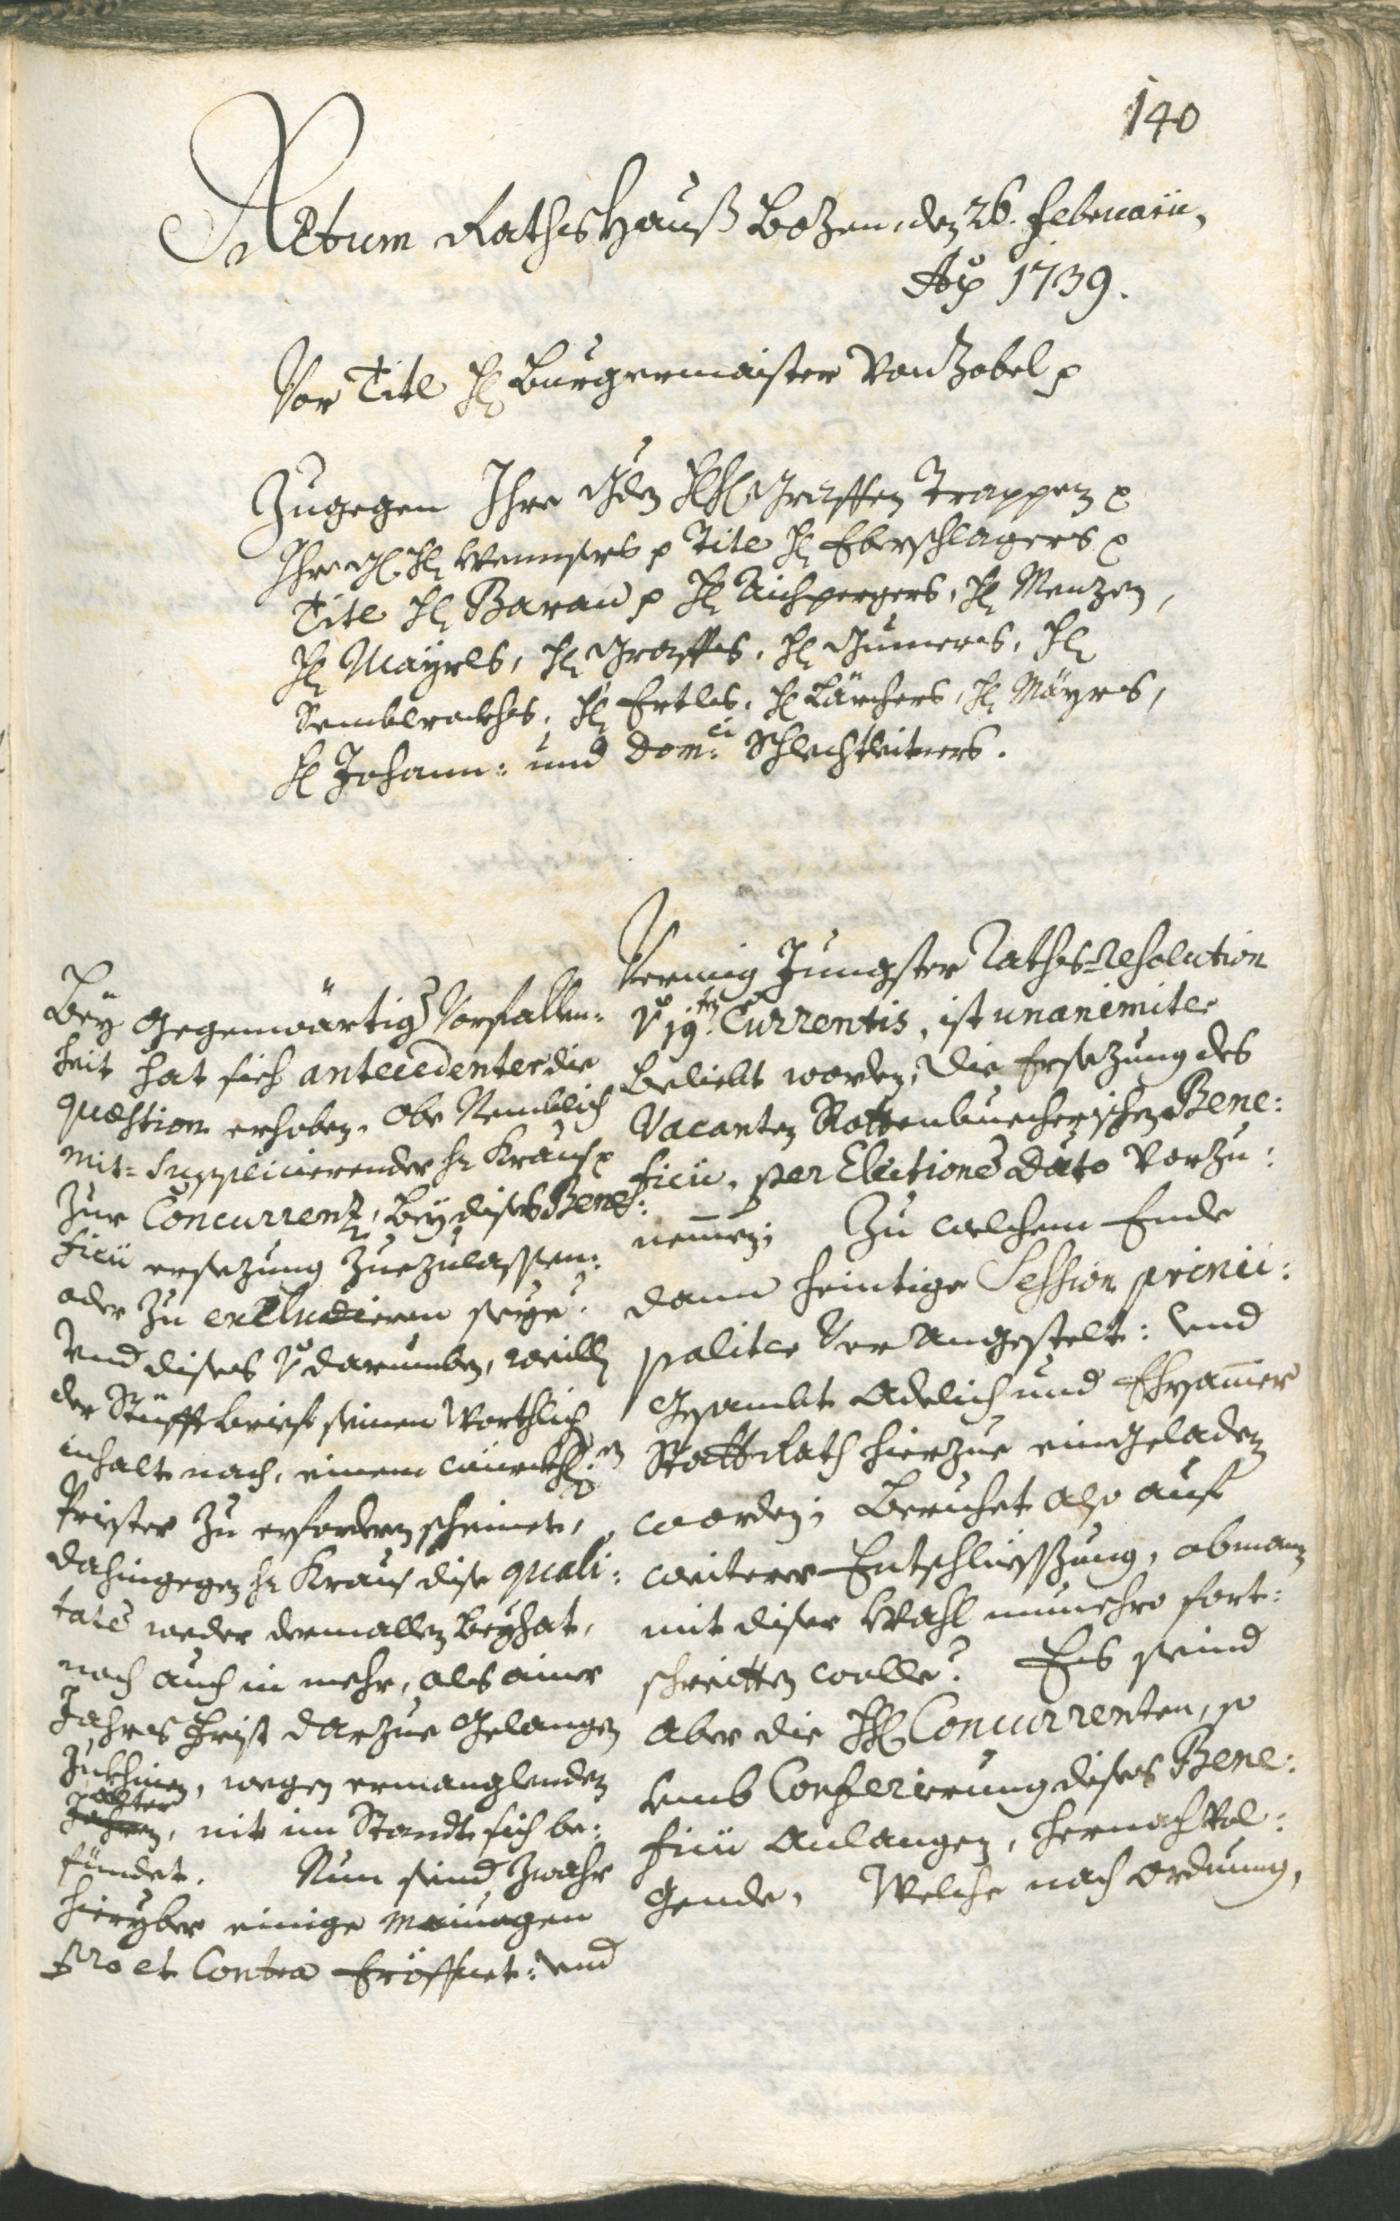 140
Actum Rathshauß Bozen, den 26. Februarii,
Ao 1739.
Vor Titl H: Burgermaister Von Zobel p
Zugegen Ihro Gden HH: Graffen Trappen p
Ihro H: Wensers p Titl H: Eberschlagers p
Titl H: Barau p H: Aichpergers, H: Menzen,
H: Mayrls, H: Graffes, H: Gumers, H:
Semblrockhes, H: Ertles, H: Lärchers, H: Mäyrs,
H: Johann: und Dom:ci Schlechtleitners.
Bey gegenwärtig Vorfallen:
heit hat sich antecedenter die
quæstion erhoben. Ob Nemblich
mit-supplicierender H: Kraus p
zur Concurrenz, bey dises Bene:
ficii ersezung zuezulassen:
oder zu excludieren seye?
Und dises darumben, weillen
der Stüfftbrieff seinen Worthlichen
inhalt nach, einem würckhl:en
Priester zu erfordern scheinet,
dahingegen H: Kraus dise quali:
tatè weder dermallen beyhat,
noch auch in mehr, als ainer
Jahrs Frist darzue gelangen
zukhinen, wegen ermanglenden
Jahren alter, nit im Standt sich be:
fündet. Nun seind zwahr
hieryber einige mainungen
pro et Contra Eröffnet: und
Vermig Jungster Raths-Resolution
19:ten Currentis, ist unanimiter
beliebt worden, die Ersezung des
Vacanten Rottenbuecherischen Bene:
ficii, per Electionè dato vorzu:
nemmen; Zu welchem Ende
dann heintige Session princi:
paliter Vor angestelt: und
gesambt Adelich und Ehrsammer
Statt Rath hierzue eingeladen
worden; Beruhet also auf
weiterer Entschliessung, ob man
mit diser Wahl nunehro fort:
schreitten wolle? Es seind
aber die HH: Concurrenten, so
umb Conferierung dises Bene:
ficii anlangen, hernach Vol:
gende, Welche nach ordnung,